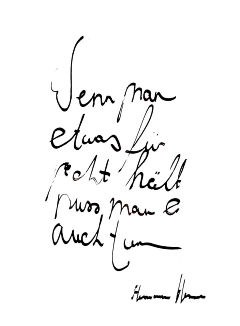 Wenn man
etwas für
recht hält
muss man es
auch tun
Hermann Hesse